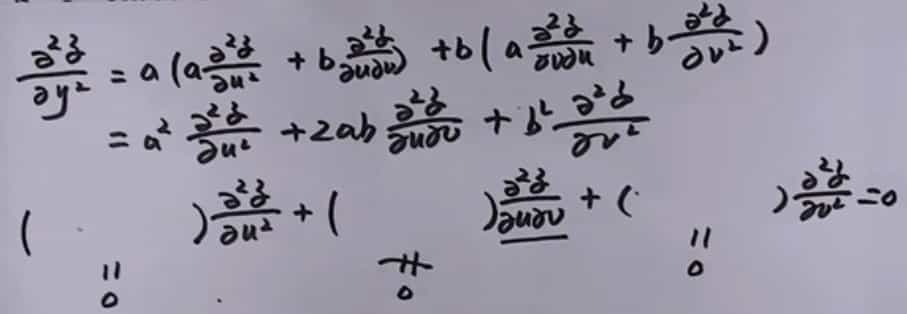 ∂²z/∂y² = a(a ∂²z/∂u² + b ∂²z/∂u∂v) + b(a ∂²z/∂v∂u + b ∂²z/∂v²)
= a² ∂²z/∂u² + 2ab ∂²z/∂u∂v + b² ∂²z/∂v²
( ) ∂²z/∂u² + ( ) ∂²z/∂u∂v + ( ) ∂²z/∂v² = 0
= 0 ≠ 0 = 0